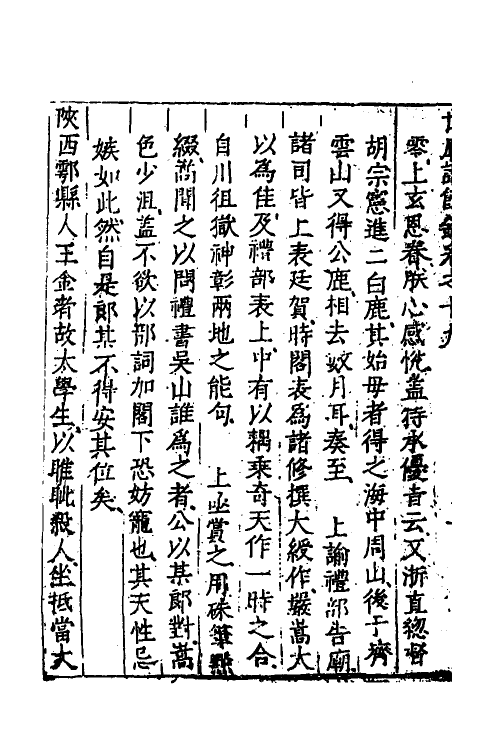 世廟識餘錄卷之十九
零上玄恩眷朕心感悅盖特承優者云又浙直緫督
胡宗憲進二白鹿其始母者得之海中周山後于齊
雲山又得公鹿相去數月耳奏至　上諭禮部告廟
諸司皆上表廷賀時閣表爲諸修撰大綬作嚴嵩大
以爲佳及禮部表上中有以耦乘奇天作一時之合
自川徂嶽神彰兩地之能句　上亟賞之用硃筆點
綴嵩聞之以問禮書吳山誰爲之者公以某郎對嵩
色少沮盖不欲以部詞加閣下恐妨寵也其天性忌
嫉如此然自是郎某不得安其位矣
陜西鄠縣人王金者故太學生以睢眦殺人坐抵當大